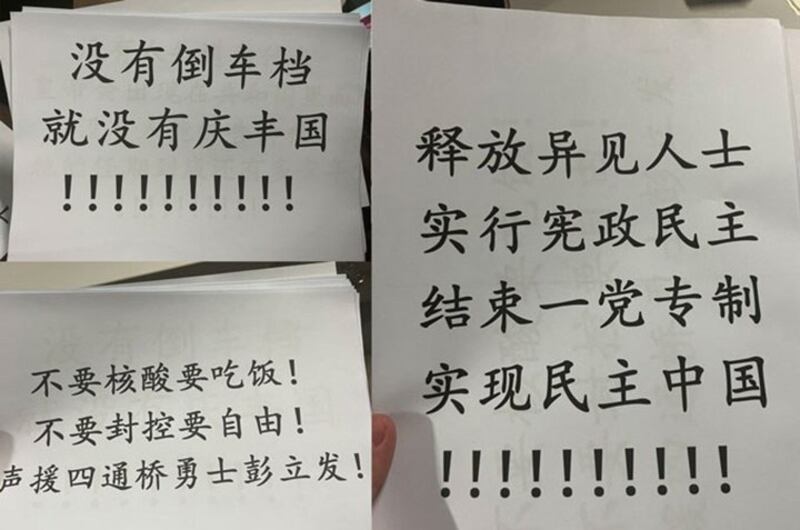 没有倒车档
就没有庆丰国
!!!!!!!!!!
不要核酸要吃饭!
不要封控要自由!
声援四通桥勇士彭立发!
释放异见人士
实行宪政民主
结束一党专制
实现民主中国
!!!!!!!!!!